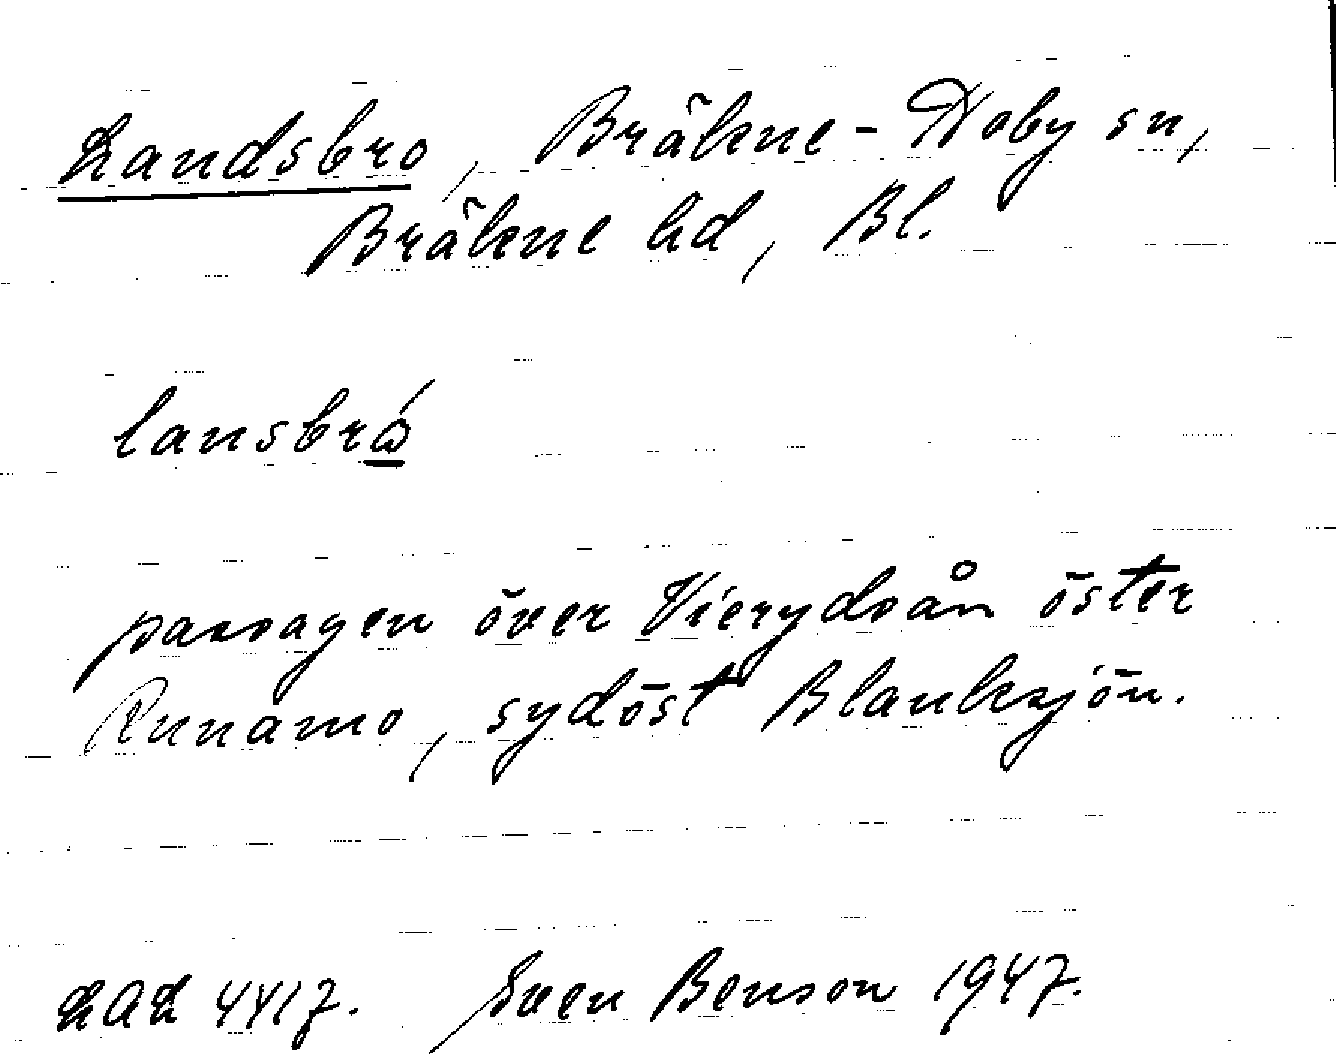 Landsbro, Bräkne-Hoby sn,
Bräkne hd, Bl.
lansbró̲
passagen över Vierydsån öster
Runamo, sydöst Blanksjön.
LAL 4417. Sven Benson 1947.